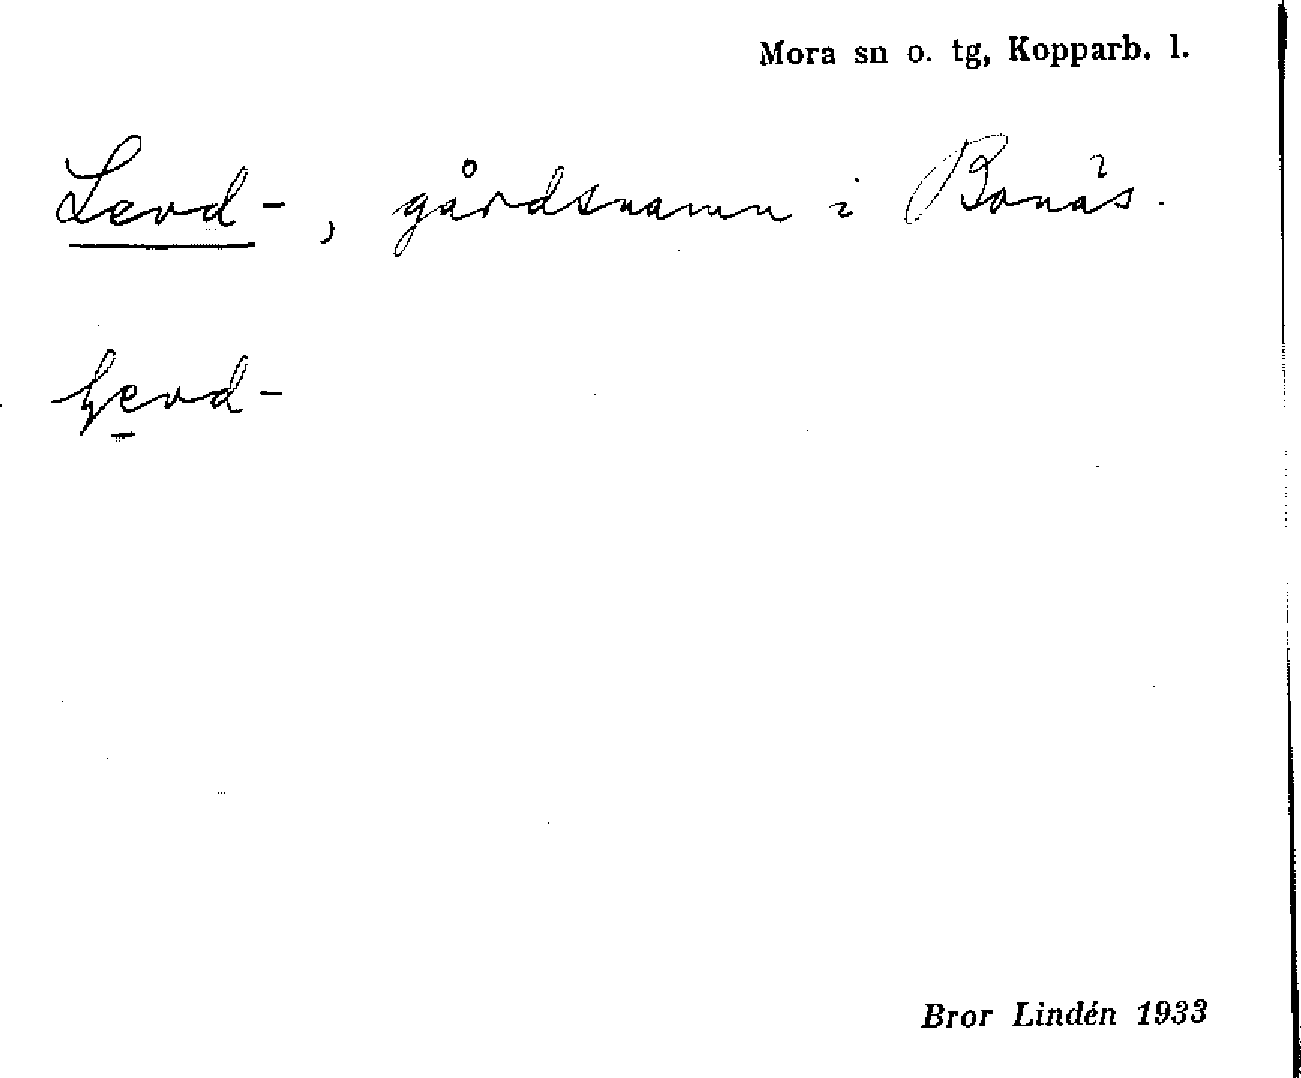 Mora sn o. tg, Kopparb. l.
Lerd-, gårdsnamn i Bonäs.
Bror Lindén 1933